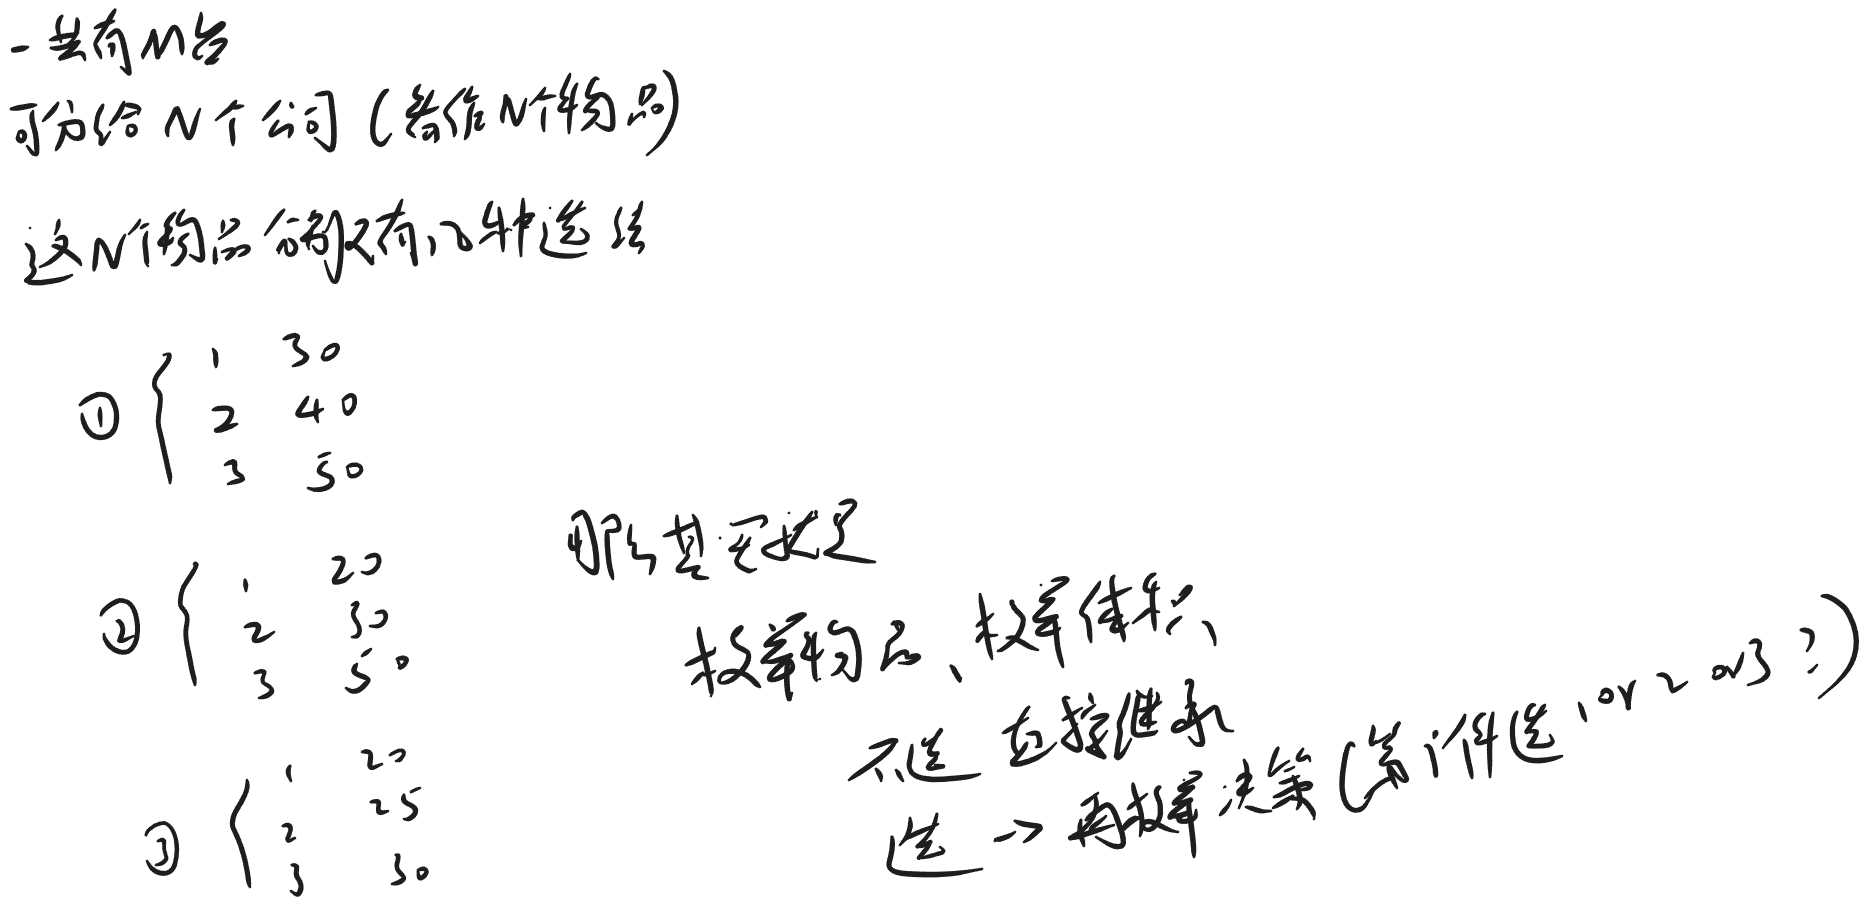 一共有M台
可分给N个公司(看作N个物品)
这N个物品分别又有几种选法
① { 1 30
2 40
3 50
② { 1 20
2 30
3 50
③ { 1 20
2 25
3 30
那么其实就是
枚举物品、枚举体积、
不选 直接继承
选 -> 再枚举决策(第i件选1 or 2 or 3?)